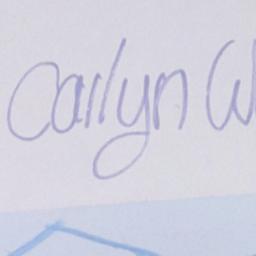 Cailyn W